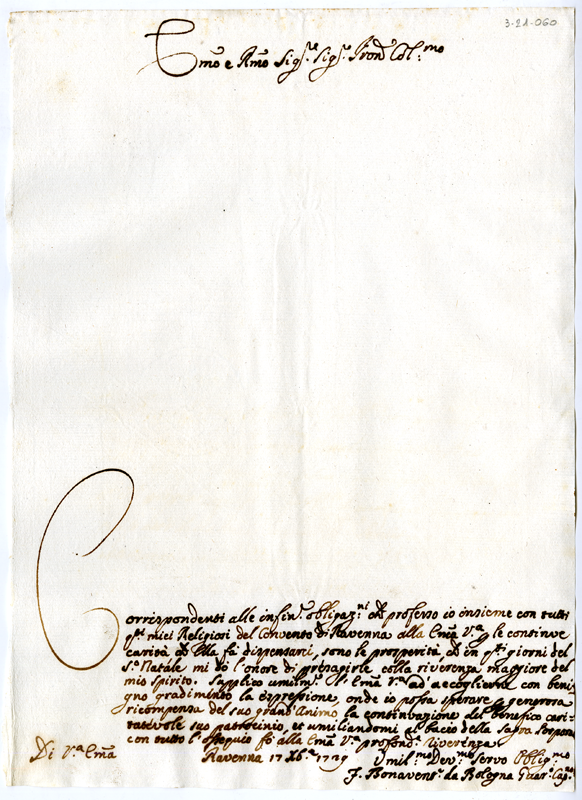 3-21-060
Emo e Rmo Sigre. Sigr. Pron Col:mo
Corrispondenti alle infin. obligazni che professo io insieme con tutti
qti miei Religiosi del Convento di Ravenna alla Emza Va p le continue
carità ch'Ella fà dispensarci, sono le prosperità ch'in qti giorni del
So Natale mi dò l'onore di presagirle colla riverenza maggiore del
mio spirito. Supplico umilme. l'Emza Va ad accoglierne con beni
gno gradimento la espressione, onde io possa sperare p generosa
ricompensa del suo grand'Animo, la continuazione del benefico cari
tatevole suo patrocinio, et umiliandomi al bacio della Sagra Porpora
con tutto l'ossequio fò alla Emza Va profonda riverenza
Di Va Emza
Ravenna 17 Xbre 1739
Umilmo Devmo Servo Obligmo
F. Bonavenra da Bologna Guarn Capno